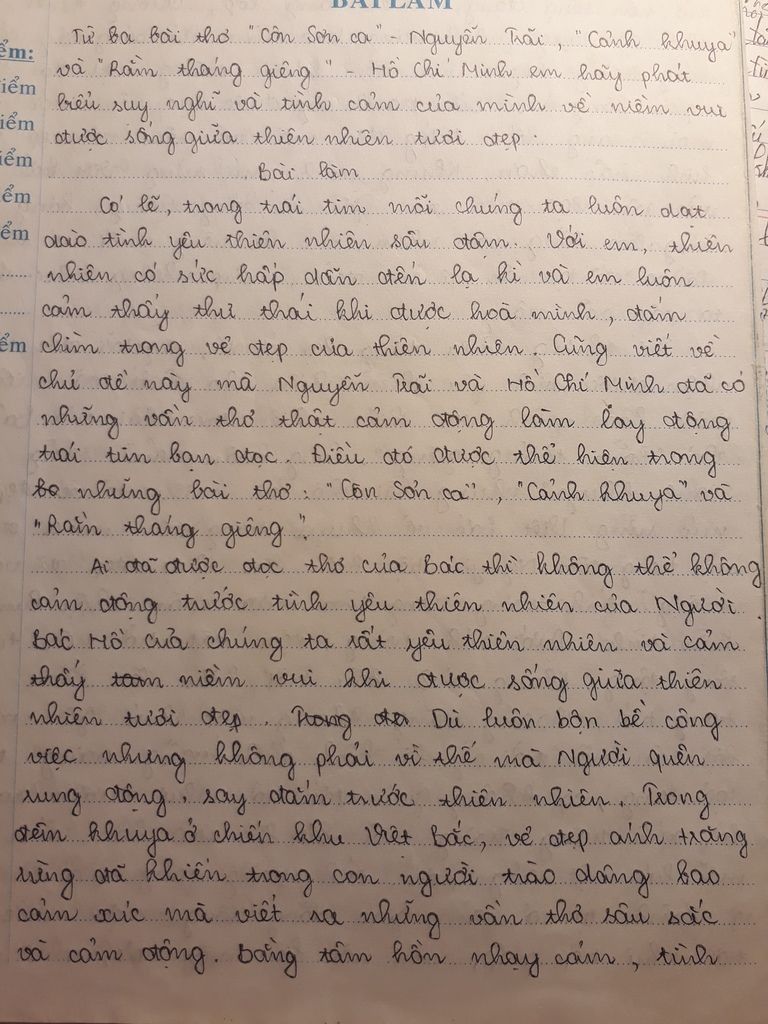 BÀI LÀM
Từ ba bài thơ "Côn Sơn ca" - Nguyễn Trãi, "Cảnh khuya"
và "Rằm tháng giêng" - Hồ Chí Minh em hãy phát
biểu suy nghĩ và tình cảm của mình về niềm vui
được sống giữa thiên nhiên tươi đẹp.
Bài làm
Có lẽ, trong trái tim mỗi chúng ta luôn dạt
dào tình yêu thiên nhiên sâu đậm. Với em, thiên
nhiên có sức hấp dẫn đến lạ kì và em luôn
cảm thấy thư thái khi được hoà mình, đắm
chìm trong vẻ đẹp của thiên nhiên. Cũng viết về
chủ đề này mà Nguyễn Trãi và Hồ Chí Minh đã có
những vần thơ thật cảm động làm lay động
trái tim bạn đọc. Điều đó được thể hiện trong
những bài thơ: "Côn Sơn ca", "Cảnh khuya" và
"Rằm tháng giêng".
Ai đã được đọc thơ của Bác thì không thể không
cảm động trước tình yêu thiên nhiên của Người.
Bác Hồ của chúng ta rất yêu thiên nhiên và cảm
thấy niềm vui khi được sống giữa thiên
nhiên tươi đẹp. Dù luôn bộn bề công
việc nhưng không phải vì thế mà Người quên
rung động, say đắm trước thiên nhiên. Trong
đêm khuya ở chiến khu Việt Bắc, vẻ đẹp ánh trăng
rừng đã khiến trong con người trào dâng bao
cảm xúc mà viết ra những vần thơ sâu sắc
và cảm động. Bằng tâm hồn nhạy cảm, tình
ểm:
iểm
iểm
iểm
ểm
ểm
ểm